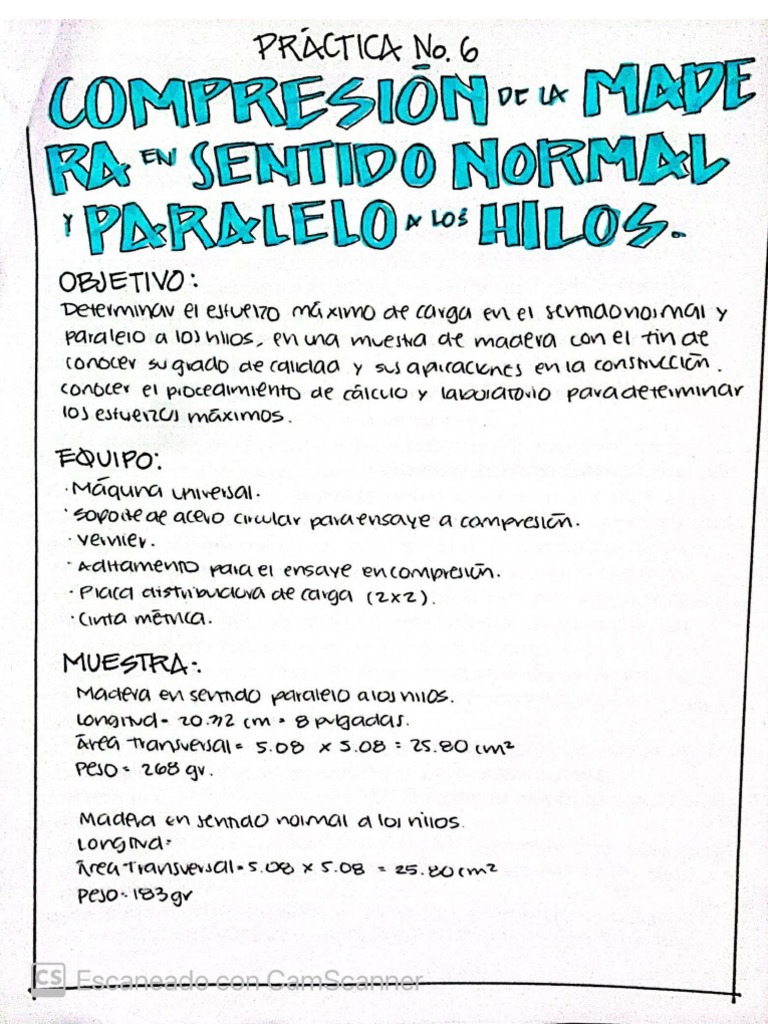 PRÁCTICA No. 6
COMPRESIÓN DE LA MADE
RA EN SENTIDO NORMAL
Y PARALELO A LOS HILOS.
OBJETIVO:
Determinar el esfuerzo máximo de carga en el sentido normal y
paralelo a los hilos, en una muestra de madera con el fin de
conocer su grado de calidad y sus aplicaciones en la construcción.
conocer el procedimiento de cálculo y laboratorio para determinar
los esfuerzos máximos.
EQUIPO:
· Máquina universal.
· Soporte de acero circular para ensaye a compresión.
· Vernier.
· Aditamento para el ensaye en compresión.
· Placa distribuidora de carga (2x2).
· Cinta métrica.
MUESTRA:
Madera en sentido paralelo a los hilos.
Longitud = cm = 8 pulgadas.
Área transversal = 5.08 x 5.08 = 25.80 cm²
Peso = 268 gr.
Madera en sentido normal a los hilos.
Longitud=
Área transversal = 5.08 x 5.08 = 25.80 cm²
Peso = 183 gr
CS Escaneado con CamScanner